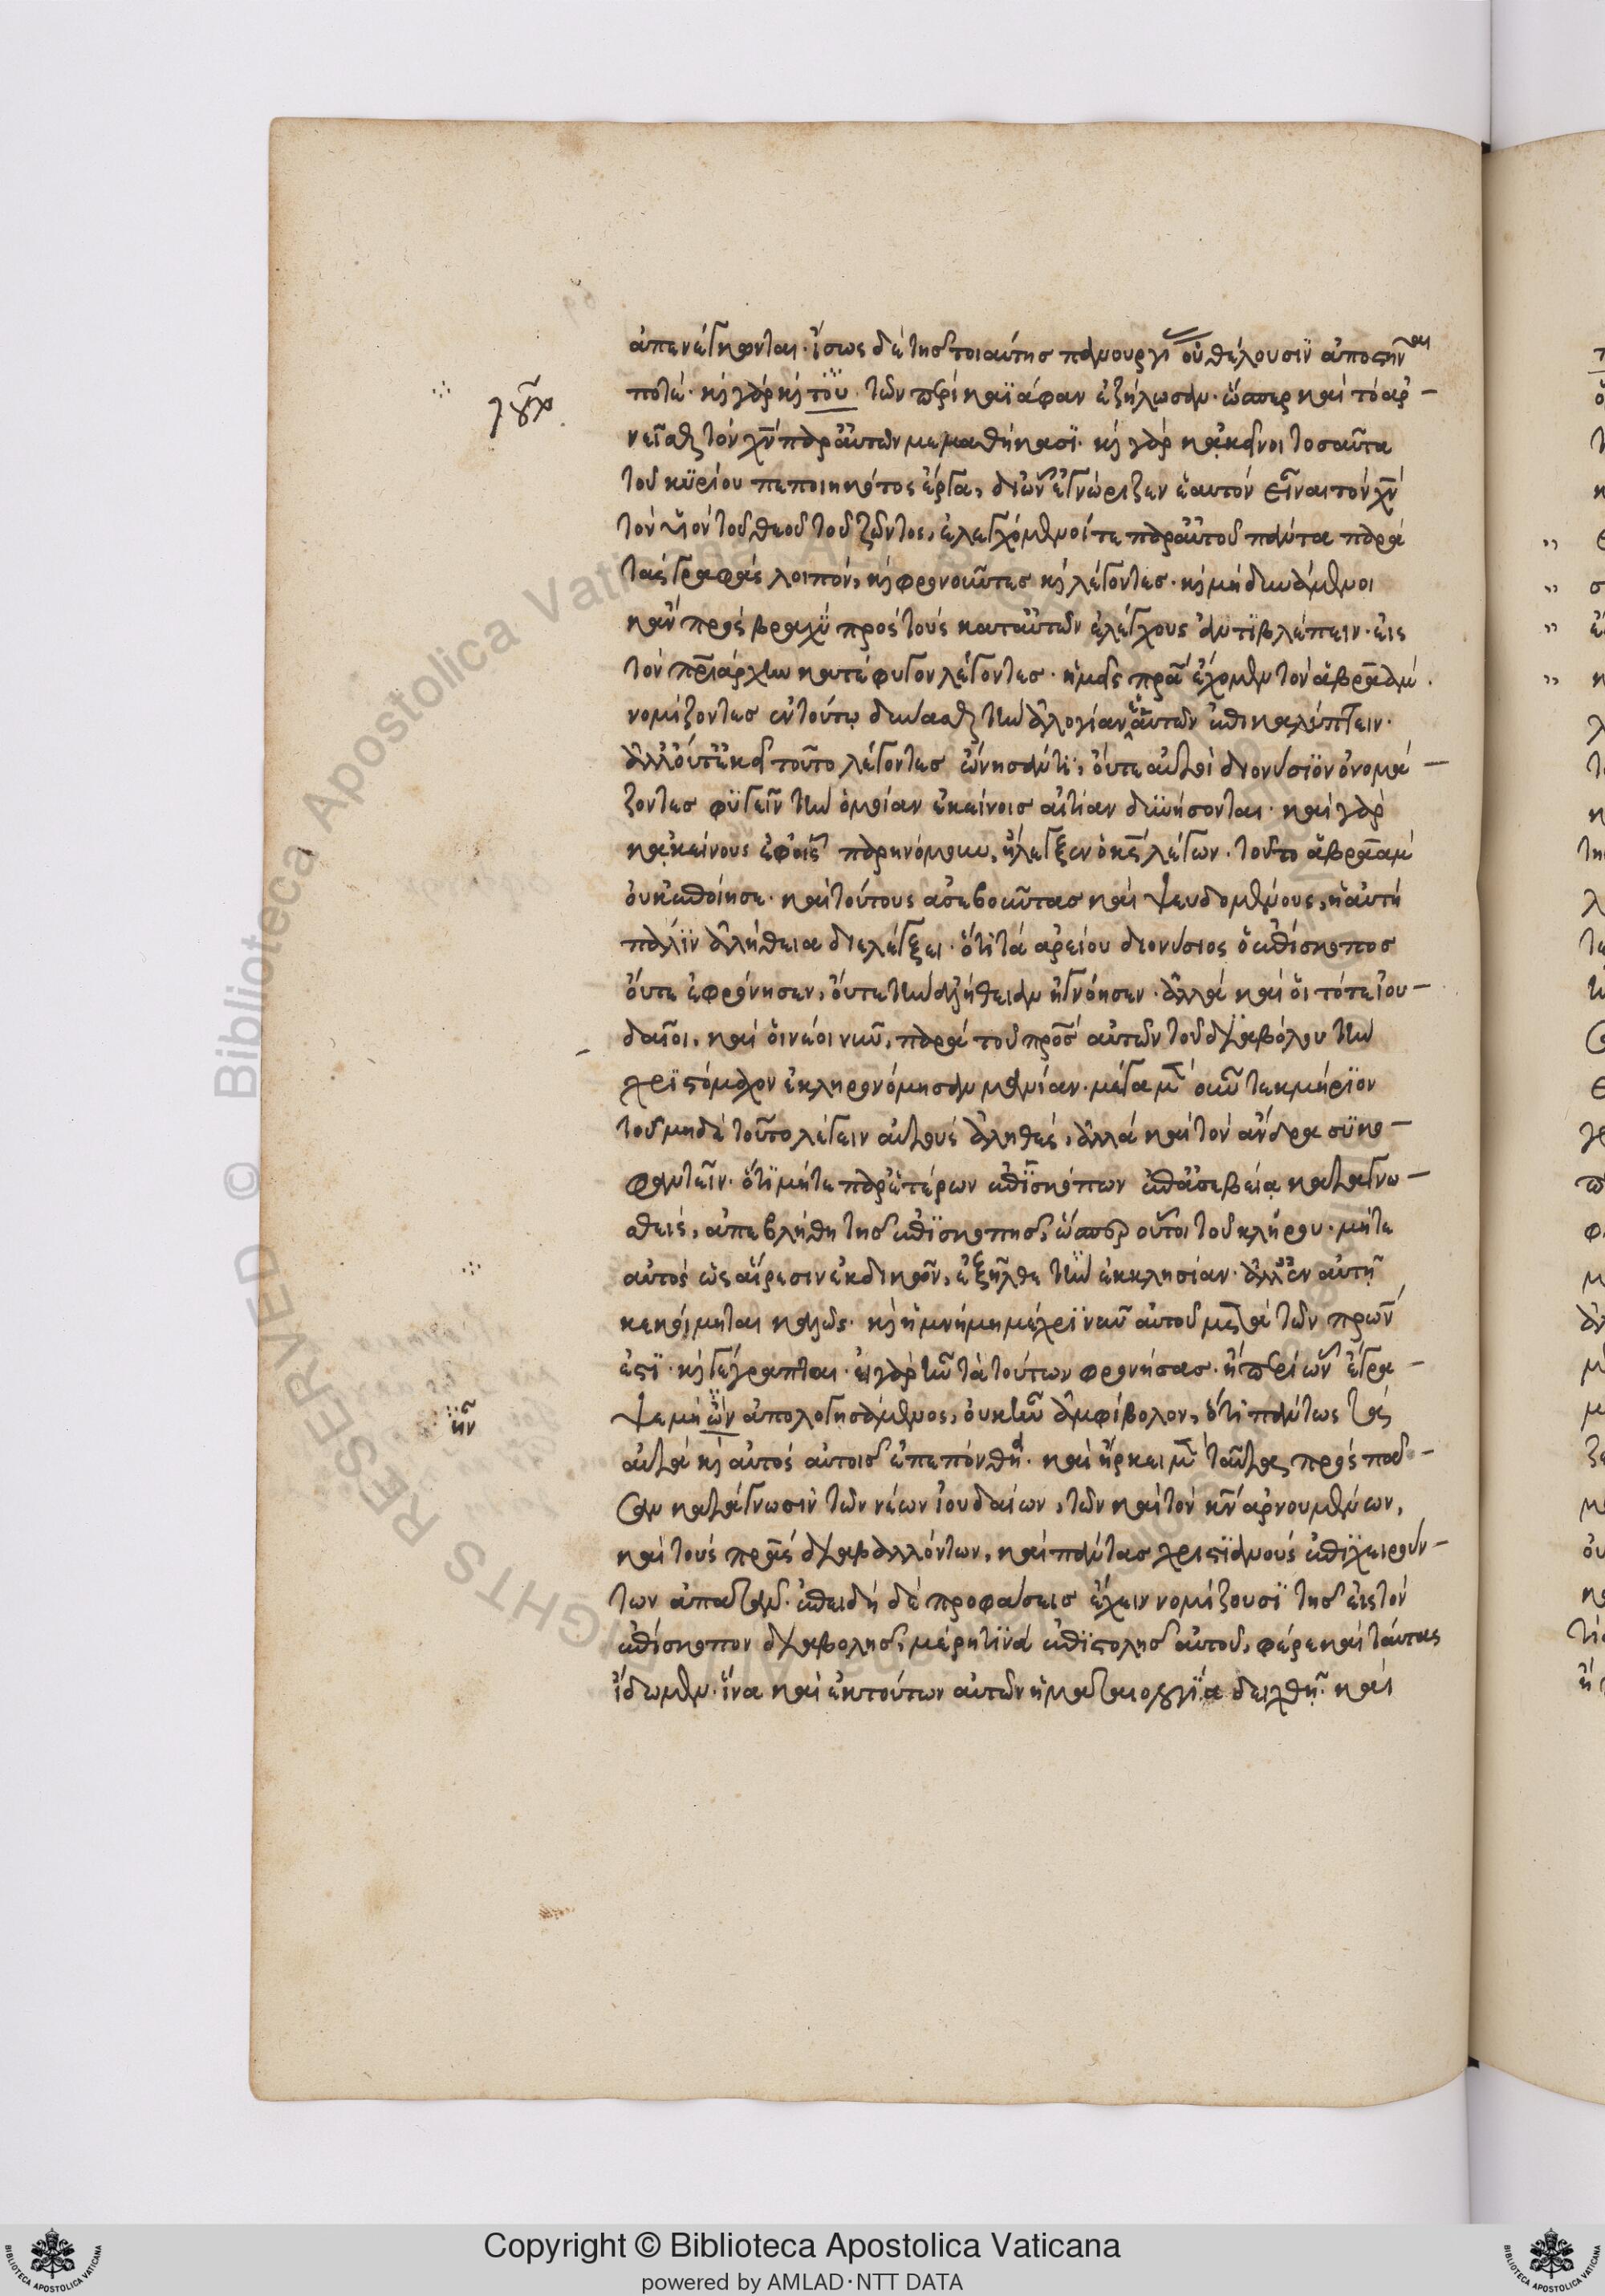 ἀπενέγκωνται· ἴσως δὲ τῆς τοιαύτης πανουργί οὐ θέλουσιν ἀποστῆναι
ποτέ· κὴ γὰρ κὴ τοῦ τῶν περὶ καϊάφαν ἐζήλωσαν· ὥσπερ καὶ τὸ ἀρ–
νεῖσθαι τὸν χν παρ' αὐτῶν μεμαθήκασι· κὴ γὰρ κἀκεῖνοι τοσαῦτα
τοῦ κυρίου πεποιηκότος ἔργα, δι' ὧν ἐγνώριζεν ἑαυτὸν εἶναι τὸν χν
τὸν υἱὸν τοῦ θεοῦ τοῦ ζῶντος, ἐλεγχόμενοί τε παρ' αὐτοῦ πάντα παρὰ
τὰς γραφὰς λοιπόν, κὴ φρονοῦντες κὴ λέγοντες· κὴ μὴ δυνάμενοι
κἂν πρὸς βραχὺ πρὸς τοὺς κατ' αὐτῶν ἐλέγχους ἀντιβλέπειν· εἰς
τὸν πριάρχην κατέφυγον λέγοντες· ἡμεῖς πρα ἔχομεν τὸν ἀβραάμ·
νομίζοντες ἐν τούτῳ δύνασθαι τὴν ἀλογίαν ἑαυτῶν ἐπικαλύπτειν·
ἀλλ' οὔτ' ἐκεῖ τοῦτο λέγοντες ὤνησάν τι, οὔτε αὐτοὶ διονύσιον ὀνομά–
ζοντες φυγεῖν τὴν ὁμοίαν ἐκείνοις αἰτίαν δυνήσονται· καὶ γὰρ
κἀκείνους ἐφ' οἷς παρηνόμουν, ἤλεγξεν ὁ κς λέγων· τοῦτο ἀβραὰμ
οὐκ ἐποίησε· καὶ τούτους ἀσεβοῦντας καὶ ψευδομένους, ἡ αὐτὴ
πάλιν ἀλήθεια διελέγξει· ὅτι τὰ ἀρείου διονύσιος ὁ ἐπίσκοπος
οὔτε ἐφρόνησεν, οὔτε τὴν ἀλήθειαν ἠγνόησεν· ἀλλὰ καὶ οἱ τότε ἰου–
δαῖοι, καὶ οἱ νέοι νῦν, παρὰ τοῦ προς αὐτῶν τοῦ διαβόλου τὴν
χριστόμαχον ἐκληρονόμησαν μανίαν· μέγα μὲν οὖν τεκμήριον
τοῦ μηδὲ τοῦτο λέγειν αὐτοὺς ἀληθές, ἀλλὰ καὶ τὸν ἄνδρα συκο–
φαντεῖν· ὅτι μήτε παρ' ἑτέρων ἐπισκόπων ἐπ' ἀσεβείᾳ καταγνω–
σθείς, ἀπεβλήθη τῆς ἐπισκοπῆς, ὥσπερ οὗτοι τοῦ κλήρου· μήτε
αὐτὸς ὡς αἵρεσιν ἐκδικῶν, ἐξῆλθε τὴν ἐκκλησίαν· ἀλλ' ἐν αὐτῇ
κεκοίμηται καλῶς· κὴ ἡ μνήμη μέχρι νῦν αὐτοῦ μετὰ τῶν πρων
ἐστι· κὴ γέγραπται· εἰ γὰρ ἦν τὰ τούτων φρονήσας· ἢ περὶ ὧν ἔγρα–
ψε μὴ ὢν ἀπολογησάμενος, οὐκ ἦν ἀμφίβολον, ὅτι πάντως τὰς
αὐτὰ κὴ αὐτὸς αὐτοῖς ἐπεπόνθει· καὶ ἤρκει μὲν ταῦτα πρὸς πᾶ–
σαν κατάγνωσιν τῶν νέων ἰουδαίων, τῶν καὶ τὸν κν ἀρνουμένων,
καὶ τοὺς πρας διαβαλλόντων, καὶ πάντας χριστιανοὺς ἐπιχειρούν–
των ἀπατᾶν· ἐπειδὴ δὲ προφάσεις ἔχειν νομίζουσι τῆς εἰς τὸν
ἐπίσκοπον διαβολῆς, μέρη τινὰ ἐπιστολῆς αὐτοῦ, φέρε καὶ ταύτας
ἴδωμεν· ἵνα καὶ ἐκ τούτων αὐτῶν ἡ ματαιολογία δειχθῇ· καὶ
ἦν